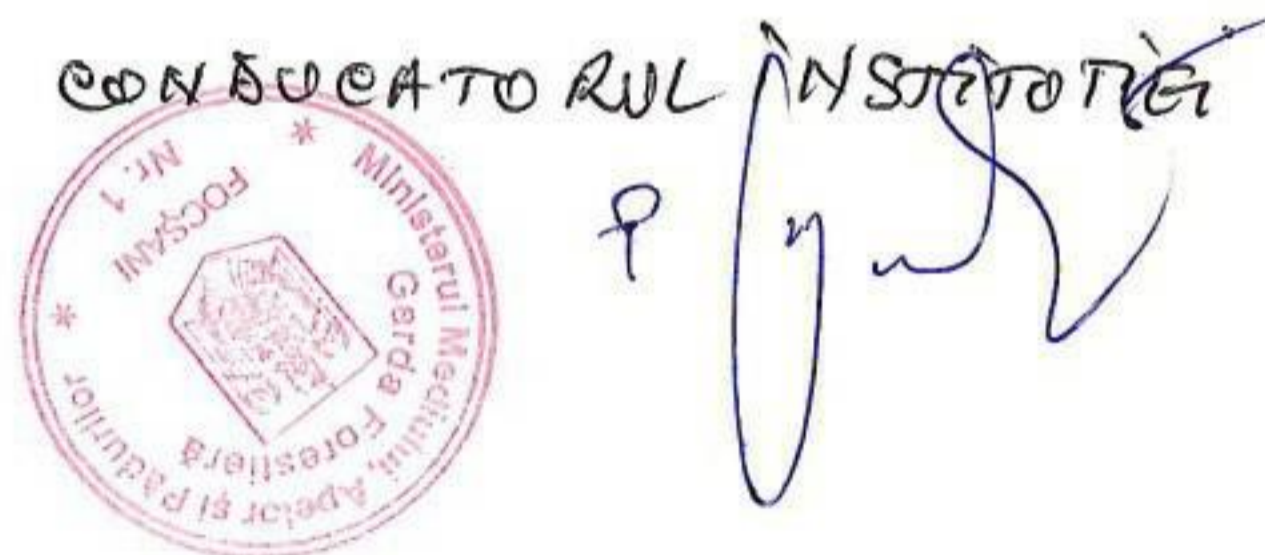 CONDUCATORUL INSTITUTIEI
Ministerul Mediului, Apelor și Pădurilor
Garda Forestieră
FOCȘANI
Nr. 1